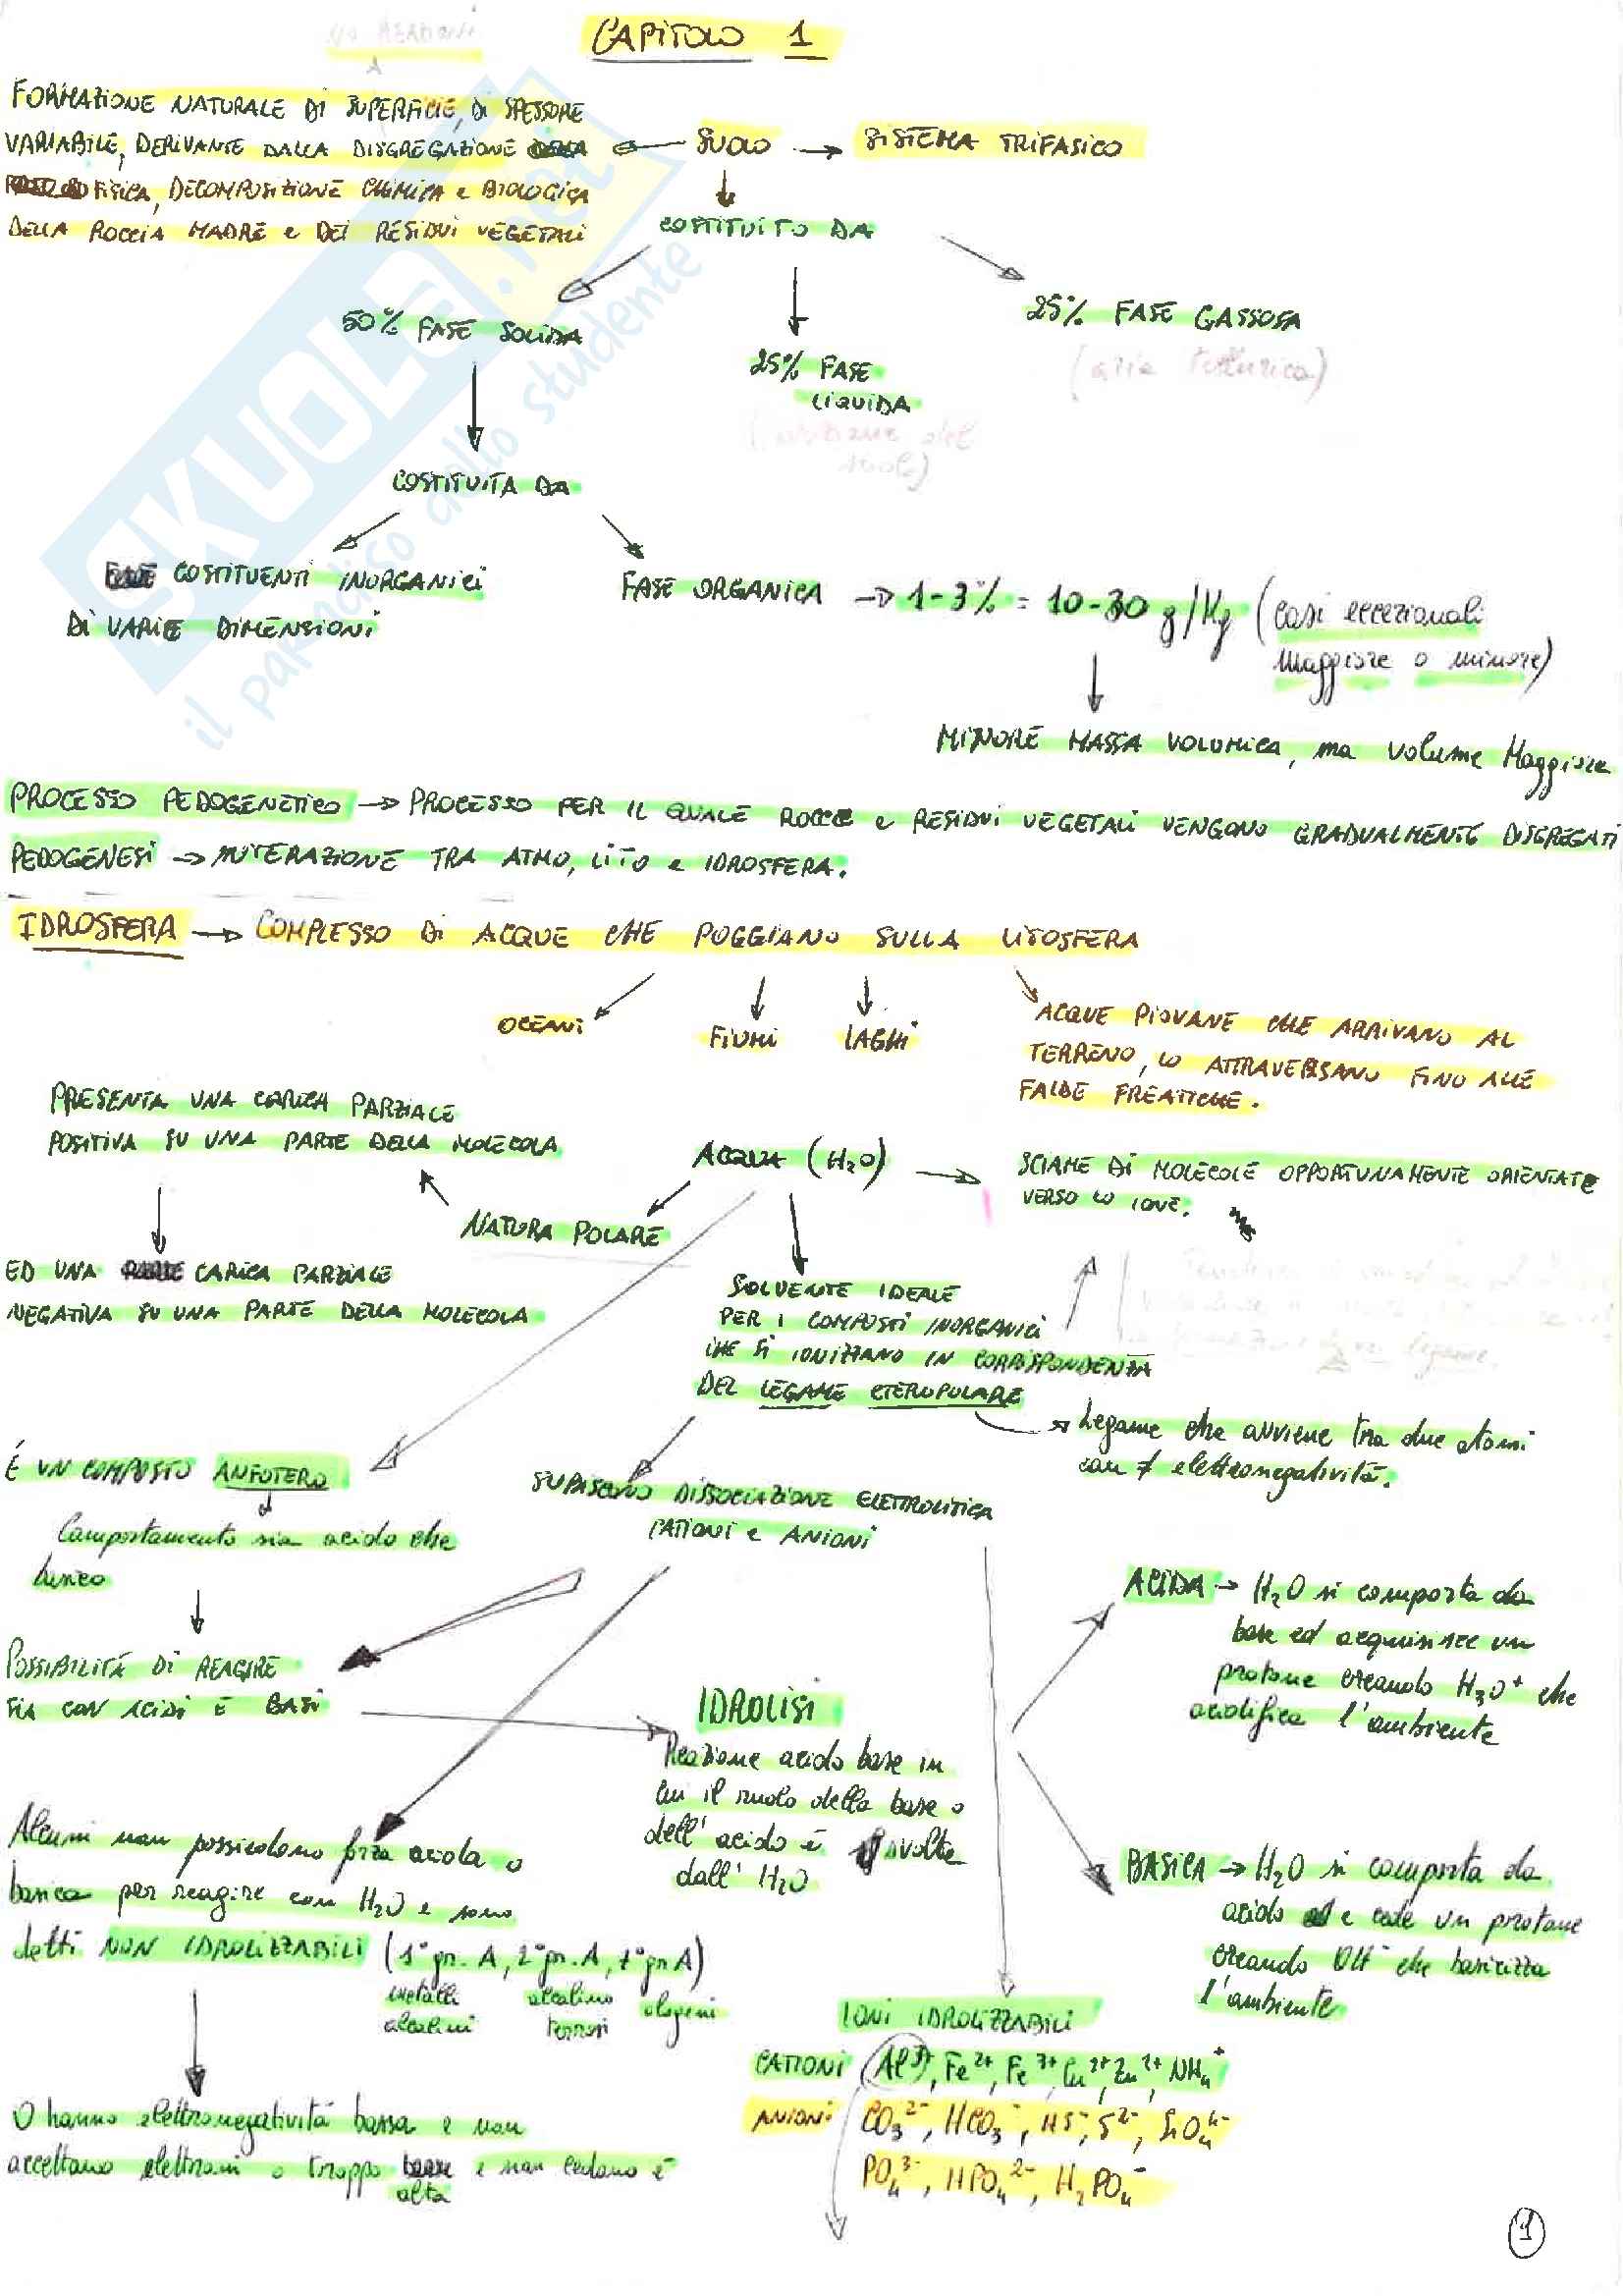 CAPITOLO 1
FORMAZIONE NATURALE DI SUPERFICIE, DI SPESSORE
VARIABILE, DERIVANTE DALLA DISGREGAZIONE
FISICA, DECOMPOSIZIONE CHIMICA e BIOLOGICA
DELLA ROCCIA MADRE e DEI RESIDUI VEGETALI
SUOLO → SISTEMA TRIFASICO
COSTITUITO DA
50% FASE SOLIDA
25% FASE
LIQUIDA
25% FASE GASSOSA
(aria tellurica)
COSTITUITA DA
COSTITUENTI INORGANICI
DI VARIE DIMENSIONI
FASE ORGANICA → 1-3% = 10-30 g/Kg (casi eccezionali
maggiore o minore)
MINORE MASSA VOLUMICA, ma volume Maggiore
PROCESSO PEDOGENETICO → PROCESSO PER IL QUALE ROCCE e RESIDUI VEGETALI VENGONO GRADUALMENTE DISGREGATI
PEDOGENESI → INTERAZIONE TRA ATMO, LITO e IDROSFERA.
IDROSFERA → COMPLESSO DI ACQUE CHE POGGIANO SULLA LITOSFERA
OCEANI
FIUMI
LAGHI
ACQUE PIOVANE CHE ARRIVANO AL
TERRENO, LO ATTRAVERSANO FINO ALLE
FALDE FREATICHE.
PRESENTA UNA CARICA PARZIALE
POSITIVA SU UNA PARTE DELLA MOLECOLA
ACQUA (H₂O)
SCIAME DI MOLECOLE OPPORTUNAMENTE ORIENTATE
VERSO LO IONE.
NATURA POLARE
ED UNA CARICA PARZIALE
NEGATIVA SU UNA PARTE DELLA MOLECOLA
SOLVENTE IDEALE
PER I COMPOSTI INORGANICI
CHE SI IONIZZANO IN CORRISPONDENZA
DEL LEGAME ETEROPOLARE
Legame che avviene tra due atomi
con ≠ elettronegatività.
É UN COMPOSTO ANFOTERO
Comportamento sia acido che
basico
SUBISCONO DISSOCIAZIONE ELETTROLITICA
CATIONI e ANIONI
POSSIBILITÀ DI REAGIRE
SIA CON ACIDI E BASI
IDROLISI
Reazione acido base in
cui il ruolo della base o
dell'acido è svolto
dall' H₂O
ACIDA → H₂O si comporta da
base ed acquisisce un
protone creando H₃O⁺ che
acidifica l'ambiente
BASICA → H₂O si comporta da
acido e cede un protone
creando OH⁻ che basicizza
l'ambiente
Alcuni non possiedono forza acida o
basica per reagire con H₂O e sono
detti NON IDROLIZZABILI (1° gr. A, 2° gr. A, 7° gr A)
metalli alcalino alogeni
alcalini terrosi
O hanno elettronegatività bassa e non
accettano elettroni o troppo alta e non cedono e⁻
IONI IDROLIZZABILI
CATIONI Al³⁺, Fe²⁺, Fe³⁺, Cu²⁺, Zn²⁺, NH₄⁺
ANIONI CO₃²⁻, HCO₃⁻, HS⁻, S²⁻, SiO₄⁴⁻
PO₄³⁻, HPO₄²⁻, H₂PO₄⁻
1
SKUOLA.net
il paradiso dello studente